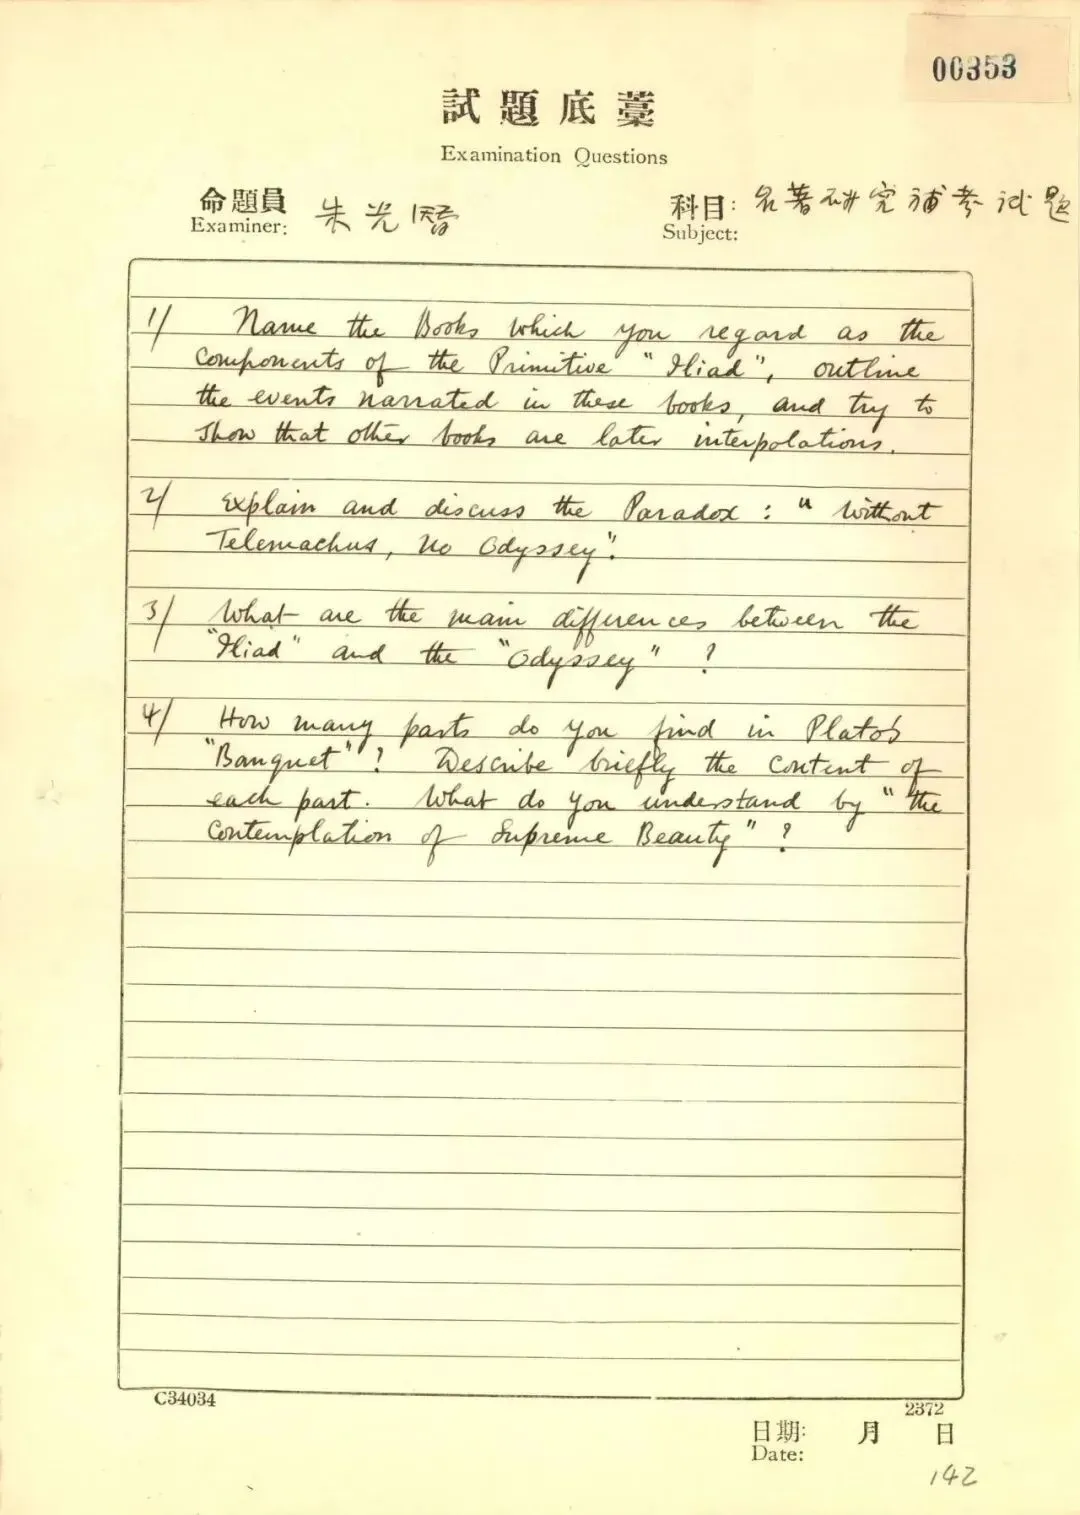 00353
試題底藁
Examination Questions
命題員 朱光潛 科目: 名著研究補考試題
Examiner: Subject:
1/ Name the Books which you regard as the
components of the Primitive "Iliad", outline
the events narrated in these books, and try to
show that other books are later interpolations.
2/ Explain and discuss the Paradox: "Without
Telemachus, no Odyssey".
3/ What are the main differences between the
"Iliad" and the "Odyssey"?
4/ How many parts do you find in Plato's
"Banquet"? Describe briefly the content of
each part. What do you understand by "the
Contemplation of Supreme Beauty"?
C34034 2372
日期: 月 日
Date:
142